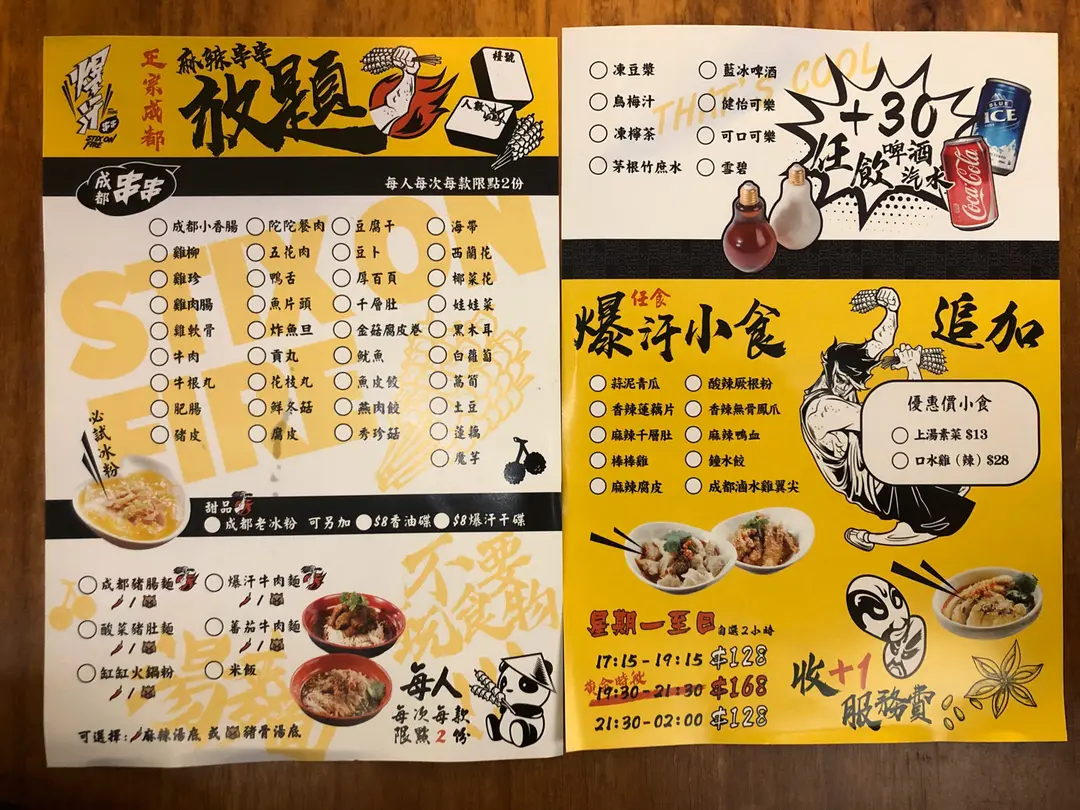 爆汗
串串
STIX ON FIRE
正宗成都
麻辣串串
放題
檯號
人數
成都 串串
每人每次每款限點2份
成都小香腸 陀陀餐肉 豆腐干 海帶
雞柳 五花肉 豆卜 西蘭花
雞珍 鴨舌 厚百頁 椰菜花
雞肉腸 魚片頭 千層肚 娃娃菜
雞軟骨 炸魚旦 金菇腐皮卷 黑木耳
牛肉 貢丸 魷魚 白蘿蔔
牛根丸 花枝丸 魚皮餃 萵筍
肥腸 鮮冬菇 燕肉餃 土豆
豬皮 腐皮 秀珍菇 蓮藕
魔芋
STIX ON FIRE
必試冰粉
甜品
成都老冰粉 可另加 $8香油碟 $8爆汗干碟
成都豬腸麵 爆汗牛肉麵
/ /
酸菜豬肚麵 番茄牛肉麵
/ /
缸缸火鍋粉 米飯
/
不要
食物
每人
每次每款
限點2份
可選擇:麻辣湯底 或 豬骨湯底
凍豆漿 藍冰啤酒
烏梅汁 健怡可樂
凍檸茶 可口可樂
茅根竹蔗水 雪碧
THAT'S COOL
+30
任飲 啤酒 汽水
BLUE ICE
Coca-Cola
任食
爆汗小食 追加
蒜泥青瓜 酸辣厥根粉
香辣蓮藕片 香辣無骨鳳爪
麻辣千層肚 麻辣鴨血
棒棒雞 鐘水餃
麻辣腐皮 成都滷水雞翼尖
優惠價小食
上湯素菜 $13
口水雞（辣）$28
星期一至日 自選2小時
17:15-19:15 $128
黃金時段
19:30-21:30 $168
21:30-02:00 $128
收+1
服務費